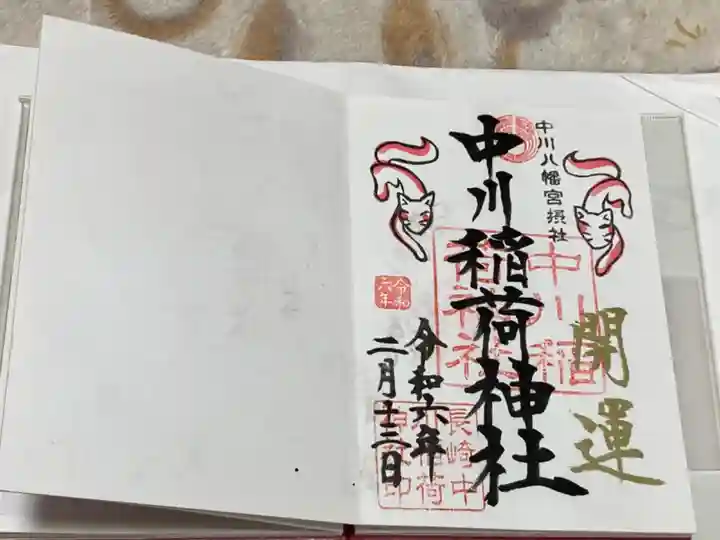 開運
中川八幡宮摂社
中川稲荷神社
中川稲
荷神社
令和六年
二月十三日
令和
六年
長崎中
川稲荷
神社印